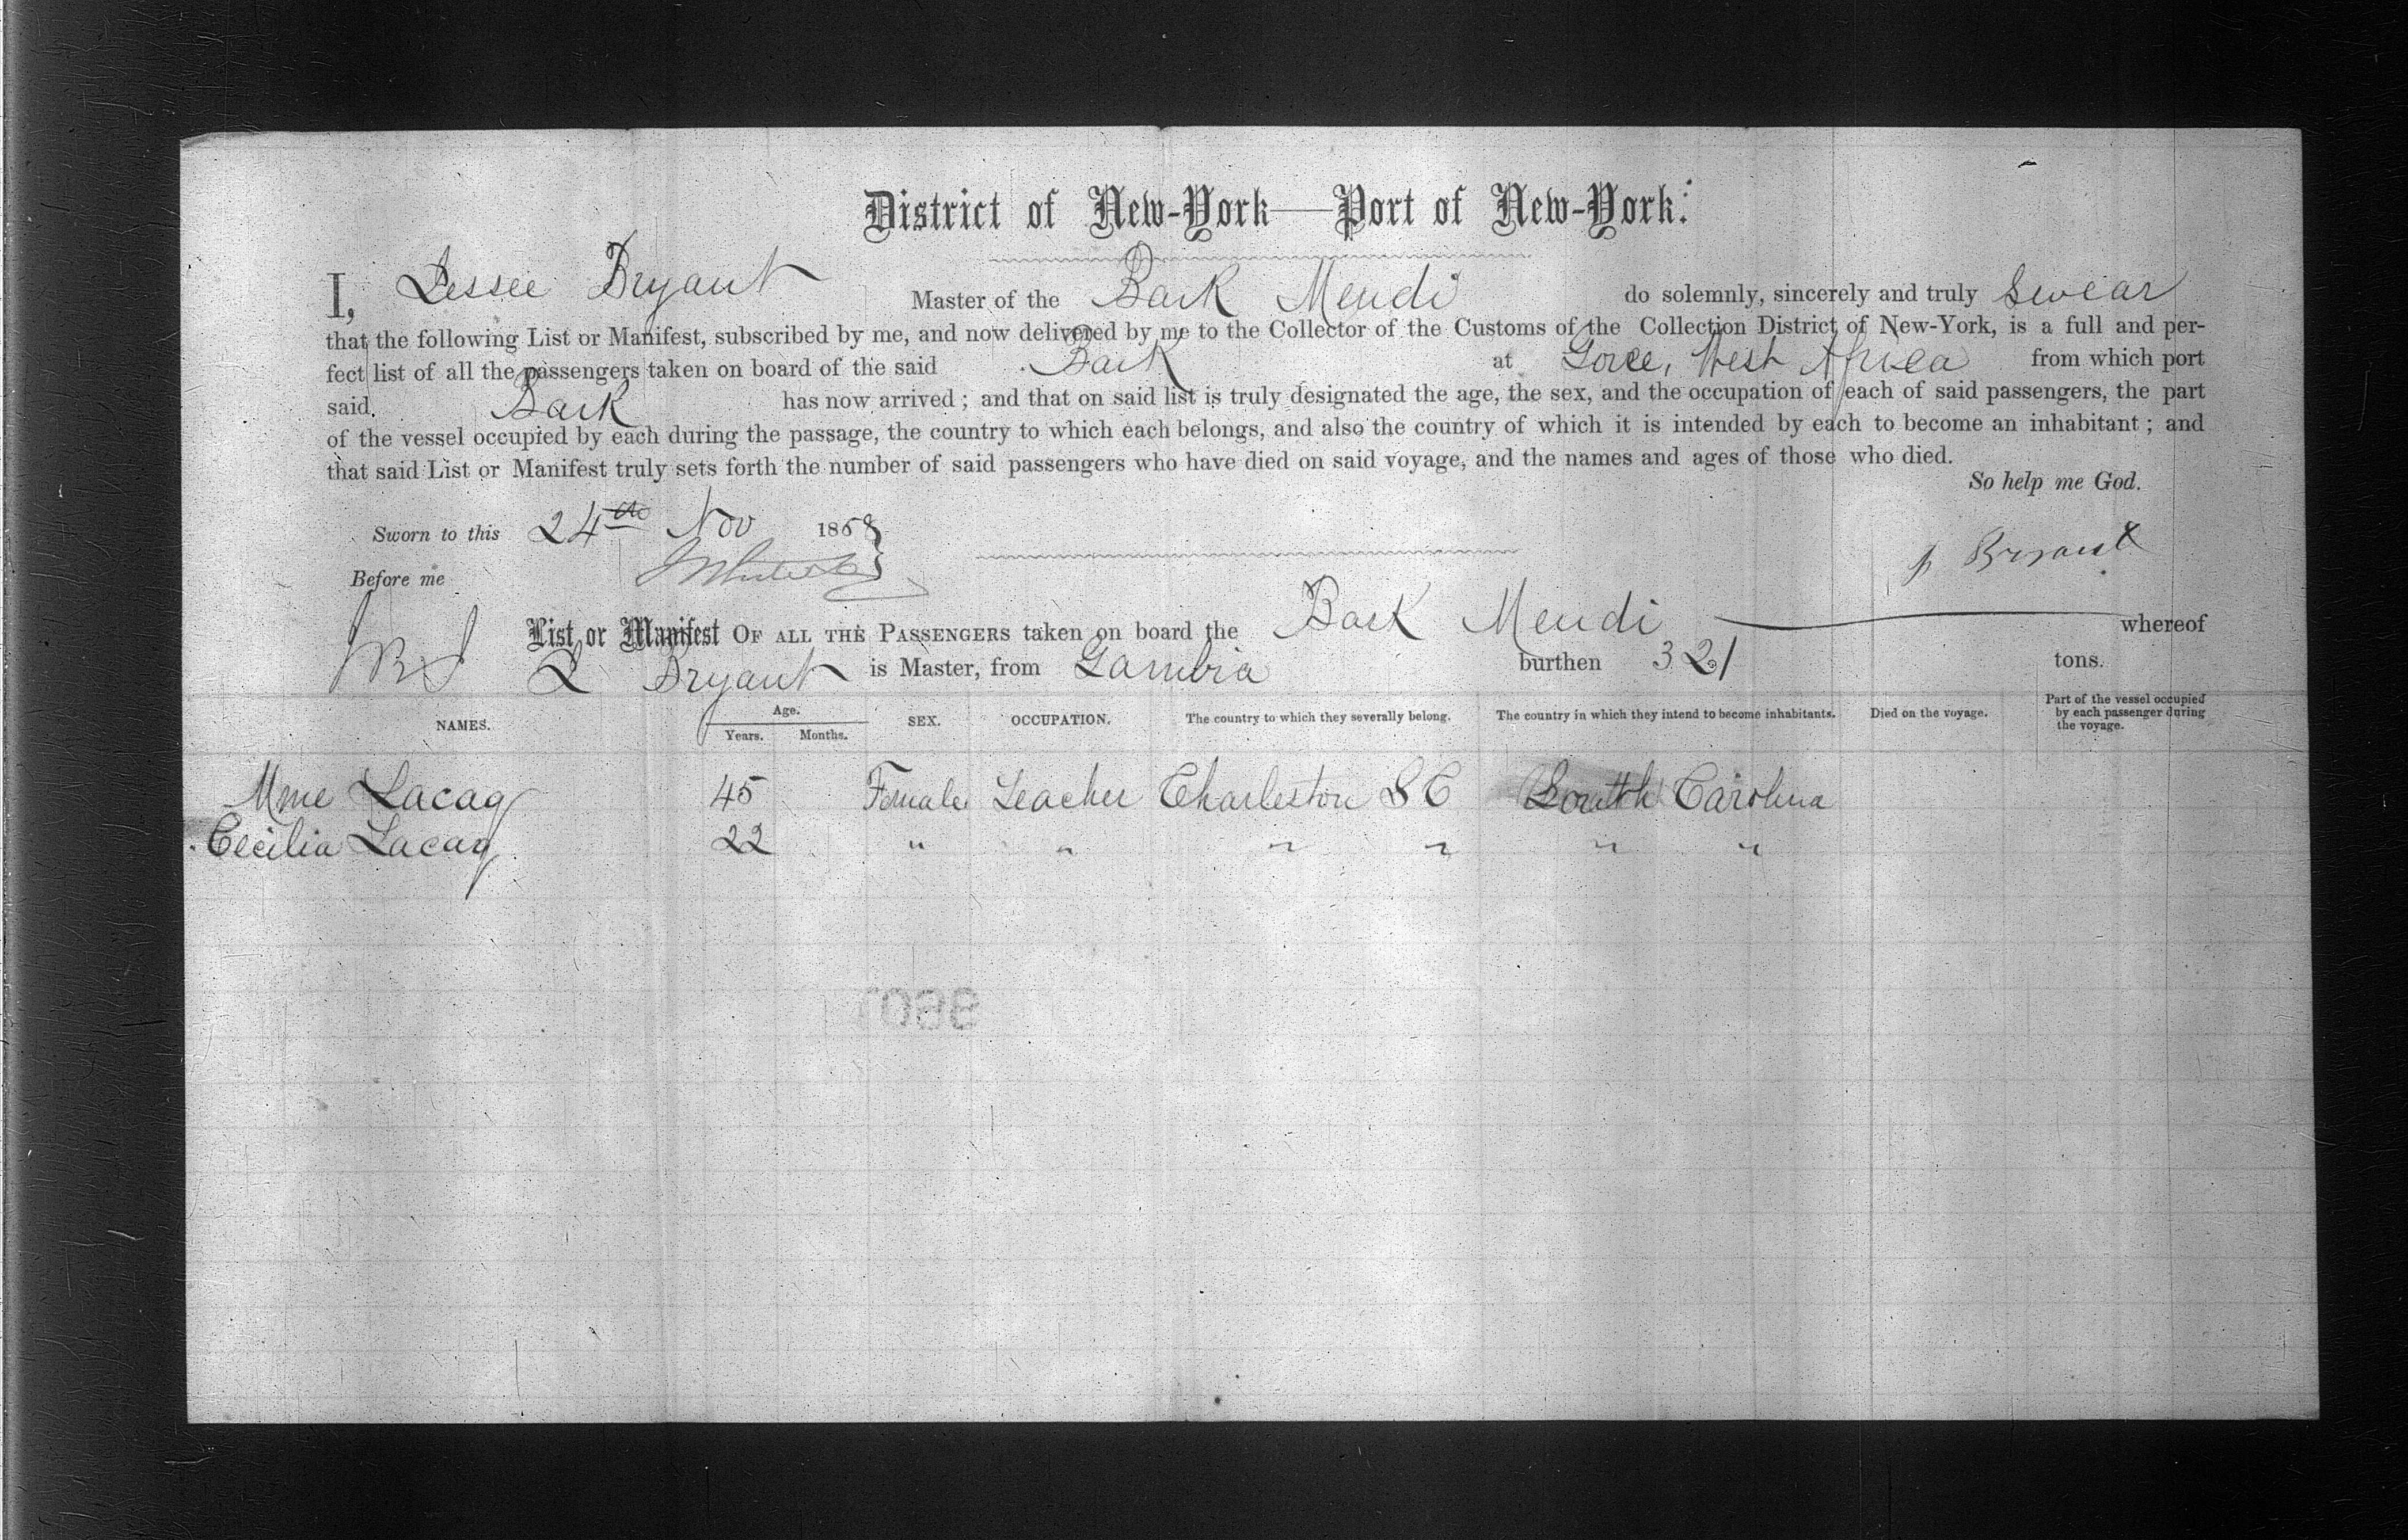 District of New-York—Port of New-York.
I, Jessee Bryant Master of the Bark Mendi do solemnly, sincerely and truly Swear
that the following List or Manifest, subscribed by me, and now delivered by me to the Collector of the Customs of the Collection District of New-York, is a full and per-
fect list of all the passengers taken on board of the said Bark at Goree, West Africa from which port
said Bark has now arrived; and that on said list is truly designated the age, the sex, and the occupation of each of said passengers, the part
of the vessel occupied by each during the passage, the country to which each belongs, and also the country of which it is intended by each to become an inhabitant; and
that said List or Manifest truly sets forth the number of said passengers who have died on said voyage, and the names and ages of those who died.
So help me God.
Sworn to this 24th Nov 1868
J Bryant
Before me
List or Manifest OF ALL THE PASSENGERS taken on board the Bark Mendi whereof
Bryant is Master, from Gambia burthen 321 tons.
NAMES. Age. Years. Months. SEX. OCCUPATION. The country to which they severally belong. The country in which they intend to become inhabitants. Died on the voyage. Part of the vessel occupied by each passenger during the voyage.
Mme Lacag 45 Female Teacher Charleston S C South Carolina
Cecilia Lacag 22 " " " " " "